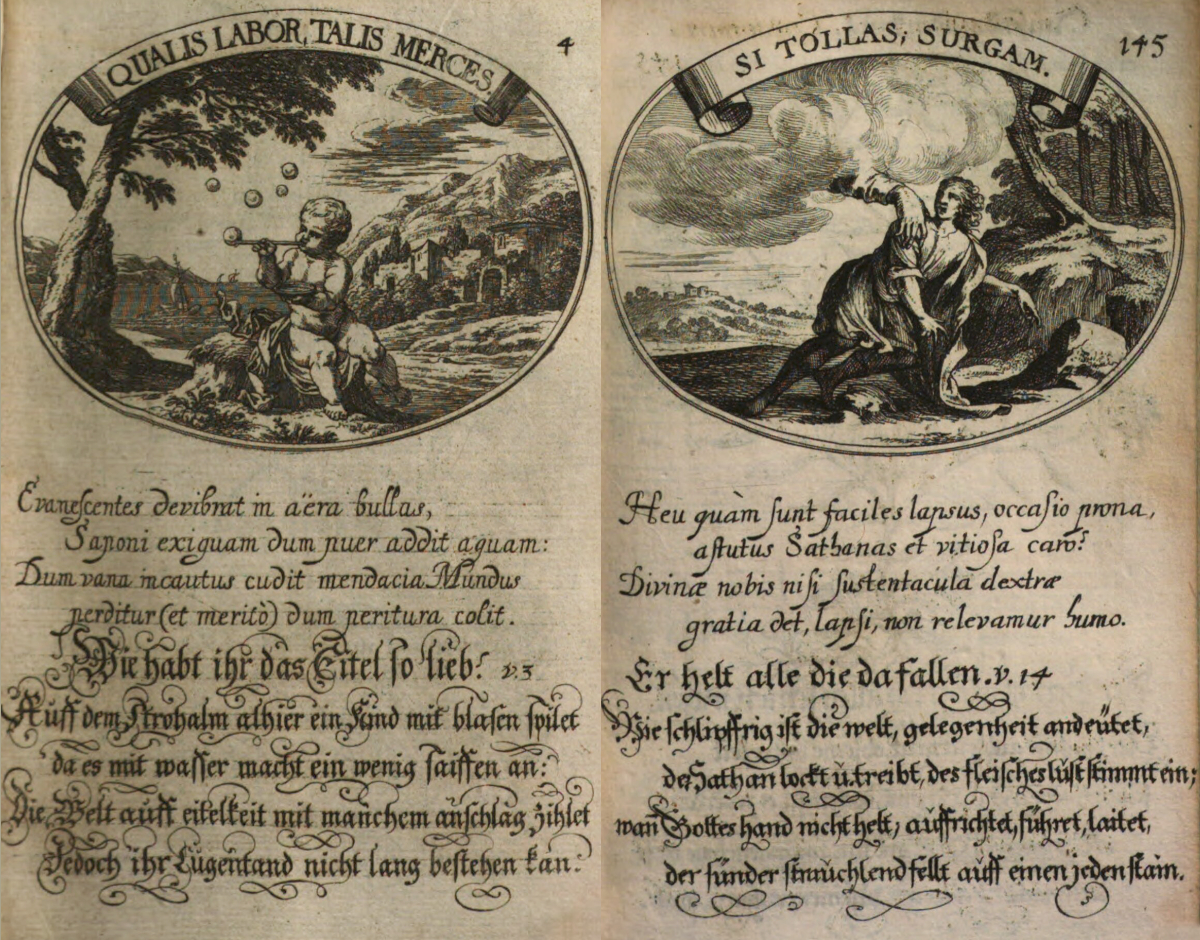 QUALIS LABOR, TALIS MERCES.
4
Evanescentes devibrat in aëra bullas,
Saponi exiguam dum puer addit aquam:
Dum vana incautus cudit mendacia Mundus
perditur (et meritò) dum peritura colit.
Wie habt ihr das Eitel so lieb! v. 3
Auff dem Strohalm alhier ein Kind mit blasen spilet
da es mit wasser macht ein wenig saiffen an:
Die Welt auff eitelkeit mit manchem anschlag zihlet
Jedoch ihr Lugentand nicht lang bestehen kan.
SI TOLLAS; SURGAM.
145
Heu quàm sunt faciles lapsus, occasio prona,
astutus Sathanas et vitiosa caro!
Divinæ nobis nisi sustentacula dextræ
gratia det, lapsi, non relevamur humo.
Er helt alle die da fallen. v. 14
Wie schlipffrig ist die welt, gelegenheit andeütet,
der Sathan lockt ŭ. treibt, des fleisches lust stimmt ein;
wan Gottes hand nicht helt, auffrichtet, führet, laitet,
der sünder strauchlend fellt auff einen jeden stain.